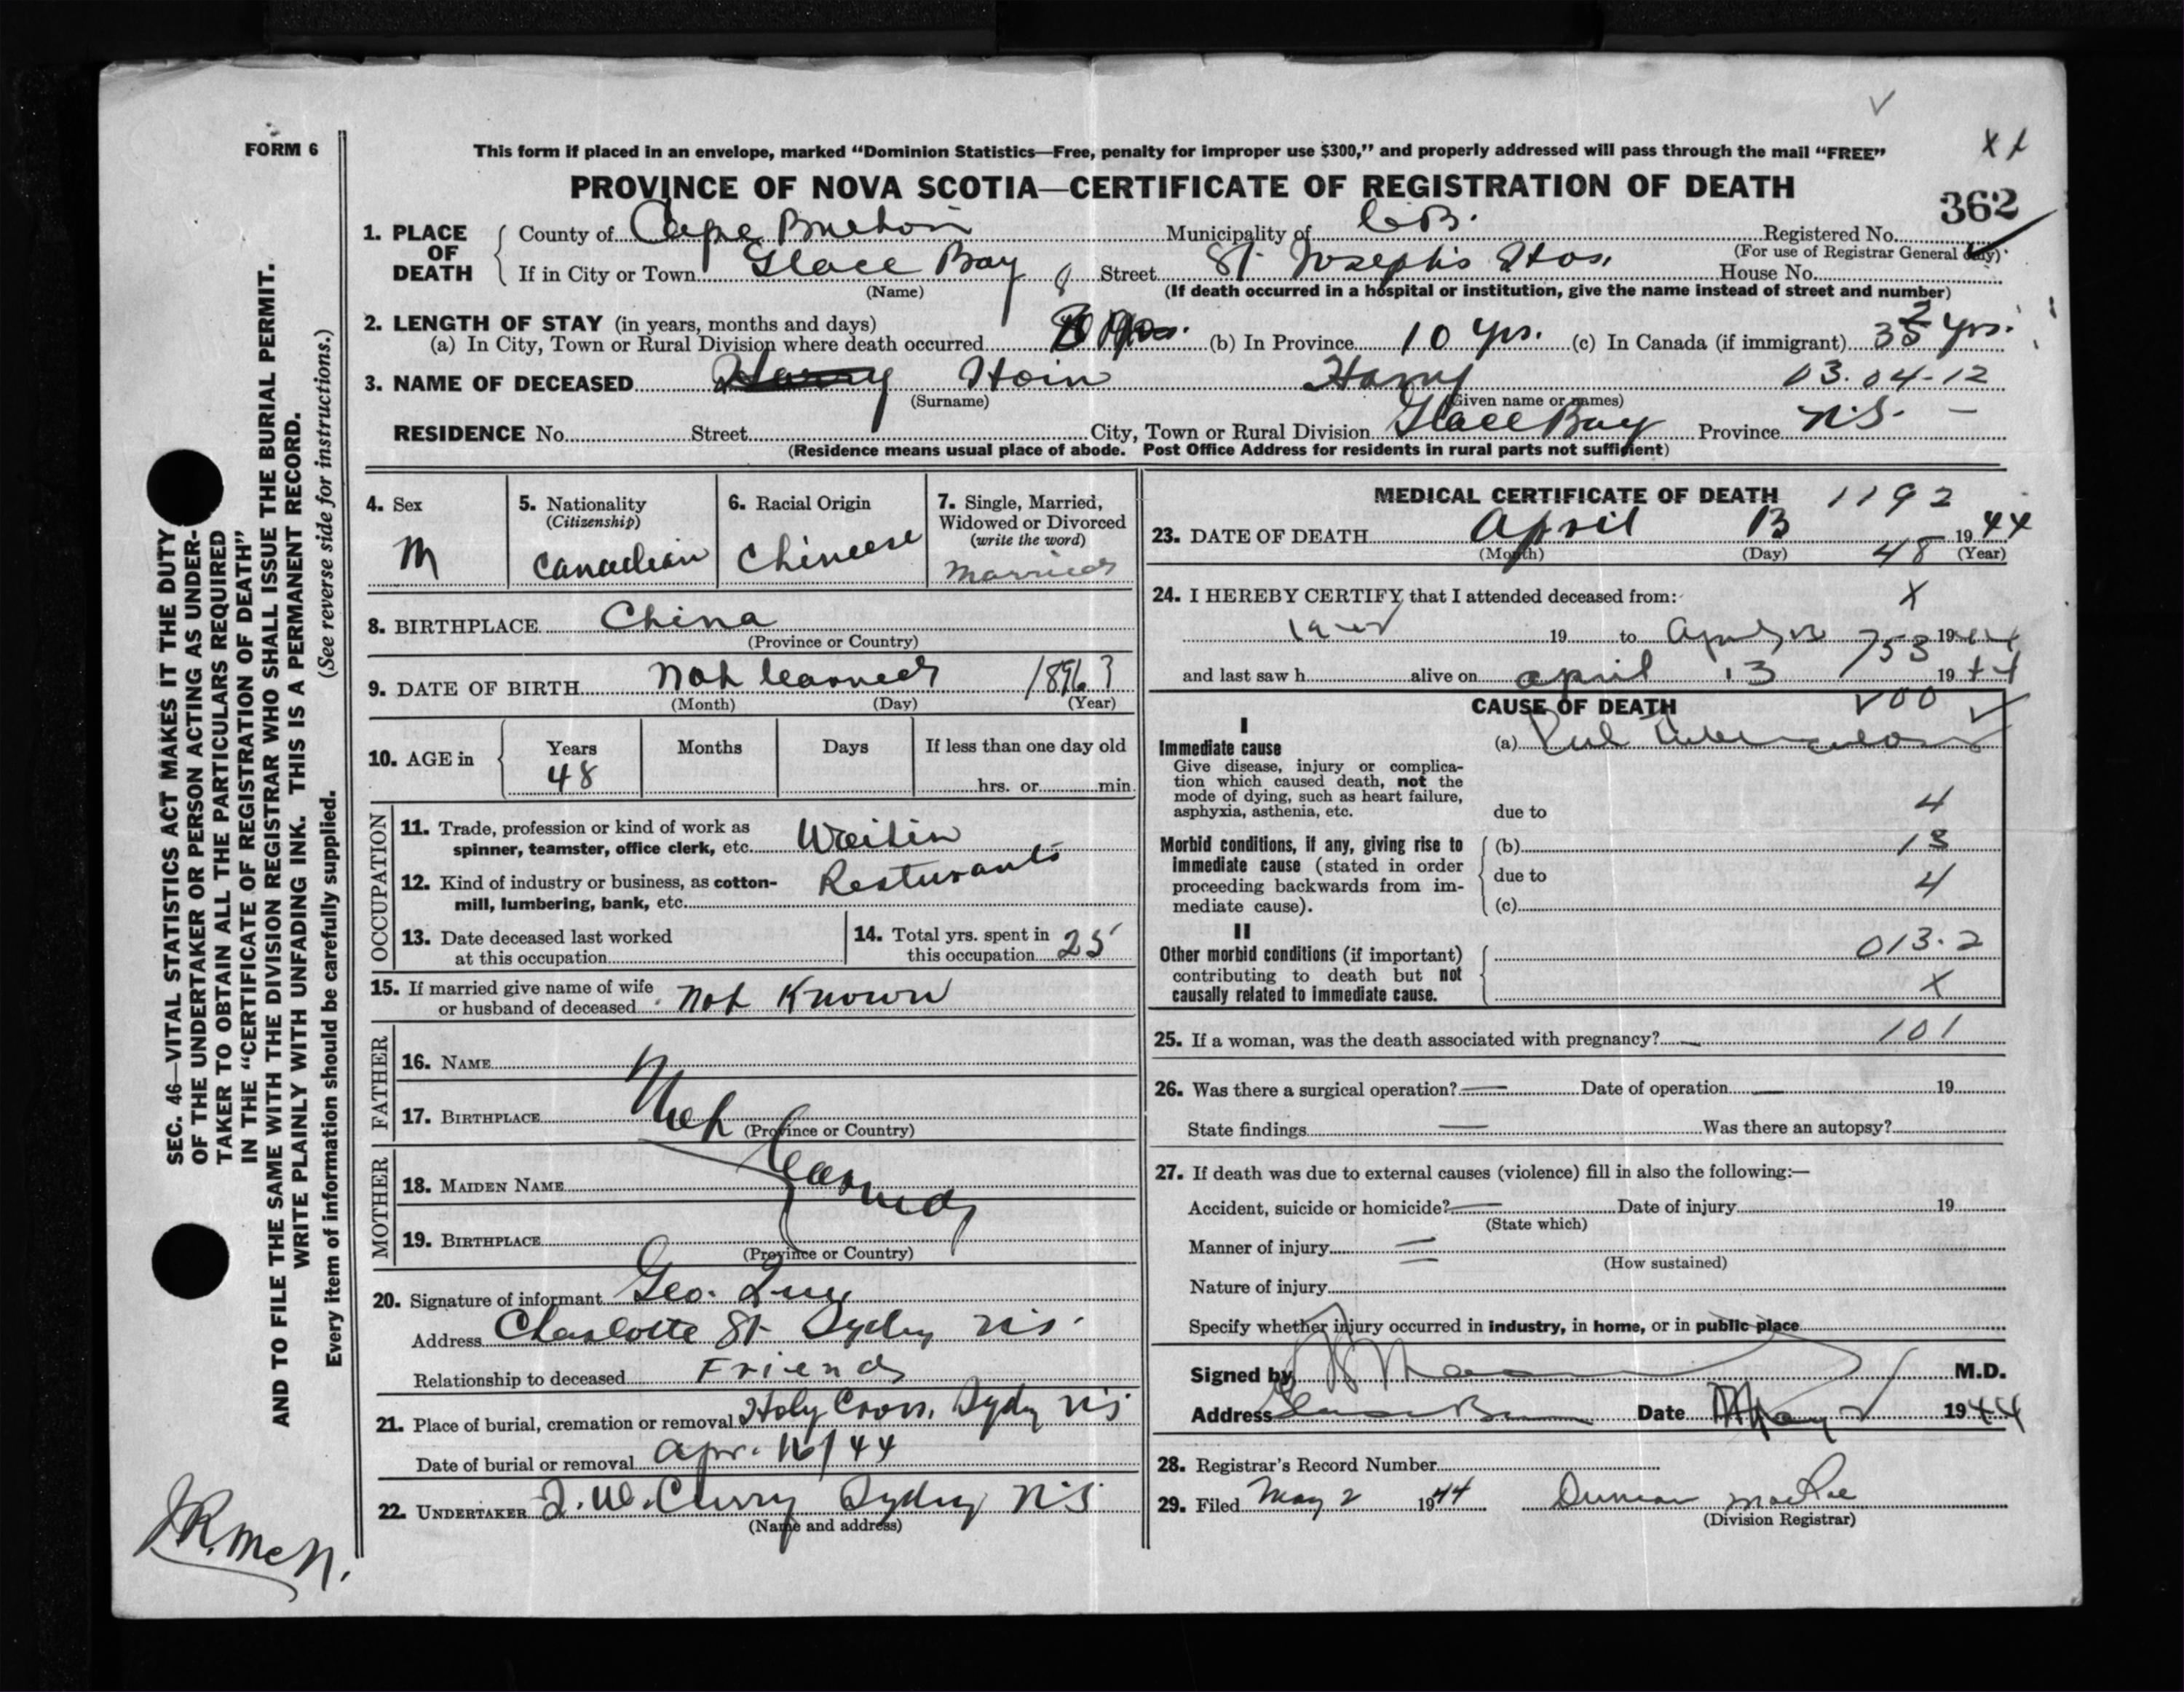 FORM 6
This form if placed in an envelope, marked “Dominion Statistics—Free, penalty for improper use $300,” and properly addressed will pass through the mail “FREE”
PROVINCE OF NOVA SCOTIA—CERTIFICATE OF REGISTRATION OF DEATH
362
1. PLACE OF DEATH
County of Cape Breton Municipality of C.B. Registered No.
(For use of Registrar General only)
If in City or Town Glace Bay Street St. Joseph's Hos. House No.
(Name) (If death occurred in a hospital or institution, give the name instead of street and number)
2. LENGTH OF STAY (in years, months and days)
(a) In City, Town or Rural Division where death occurred (b) In Province 10 yrs. (c) In Canada (if immigrant) yrs.
3. NAME OF DECEASED Harry Hoin Harry 03.04-12
(Surname) (Given name or names)
RESIDENCE No. Street City, Town or Rural Division Glace Bay Province N.S. —
(Residence means usual place of abode. Post Office Address for residents in rural parts not sufficient)
4. Sex
M
5. Nationality
(Citizenship)
Canadian
6. Racial Origin
Chineese
7. Single, Married,
Widowed or Divorced
(write the word)
Married
8. BIRTHPLACE China
(Province or Country)
9. DATE OF BIRTH Not learned 1896?
(Month) (Day) (Year)
10. AGE in
Years Months Days If less than one day old
48
hrs. or min.
OCCUPATION
11. Trade, profession or kind of work as
spinner, teamster, office clerk, etc.
12. Kind of industry or business, as cotton-
mill, lumbering, bank, etc. Resturants
13. Date deceased last worked
at this occupation
14. Total yrs. spent in
this occupation 25
15. If married give name of wife
or husband of deceased Not Known
FATHER
16. NAME
17. BIRTHPLACE
(Province or Country)
Not learned
MOTHER
18. MAIDEN NAME
19. BIRTHPLACE
(Province or Country)
20. Signature of informant Geo.
Address Charlotte St Sydney N.S.
Relationship to deceased Friend
21. Place of burial, cremation or removal Holy Cross, Sydney N.S
Date of burial or removal Apr. 16/44
22. UNDERTAKER Curry Sydney N.S
(Name and address)
MEDICAL CERTIFICATE OF DEATH 1192
23. DATE OF DEATH April 13 1944
(Month) (Day) (Year)
48
24. I HEREBY CERTIFY that I attended deceased from:
X
19 to April 13 1944
753
and last saw h alive on April 13 1944
CAUSE OF DEATH
I
Immediate cause
Give disease, injury or complica-
tion which caused death, not the
mode of dying, such as heart failure,
asphyxia, asthenia, etc.
(a) Pul Tuberculosis
due to 4
Morbid conditions, if any, giving rise to
immediate cause (stated in order
proceeding backwards from im-
mediate cause).
(b) 13
due to 4
(c)
II
Other morbid conditions (if important)
contributing to death but not
causally related to immediate cause.
013.2
X
25. If a woman, was the death associated with pregnancy? — 101
26. Was there a surgical operation? — Date of operation — 19
State findings — Was there an autopsy?
27. If death was due to external causes (violence) fill in also the following:—
Accident, suicide or homicide? — Date of injury 19
(State which)
Manner of injury
(How sustained)
Nature of injury
Specify whether injury occurred in industry, in home, or in public place
Signed by M.D.
Address Glace Bay Date May 2 1944
28. Registrar's Record Number
29. Filed May 2 1944 Duncan MacRae
(Division Registrar)
SEC. 46—VITAL STATISTICS ACT MAKES IT THE DUTY
OF THE UNDERTAKER OR PERSON ACTING AS UNDER-
TAKER TO OBTAIN ALL THE PARTICULARS REQUIRED
IN THE “CERTIFICATE OF REGISTRATION OF DEATH”
AND TO FILE THE SAME WITH THE DIVISION REGISTRAR WHO SHALL ISSUE THE BURIAL PERMIT.
WRITE PLAINLY WITH UNFADING INK. THIS IS A PERMANENT RECORD.
Every item of information should be carefully supplied. (See reverse side for instructions.)
J.R. McN.